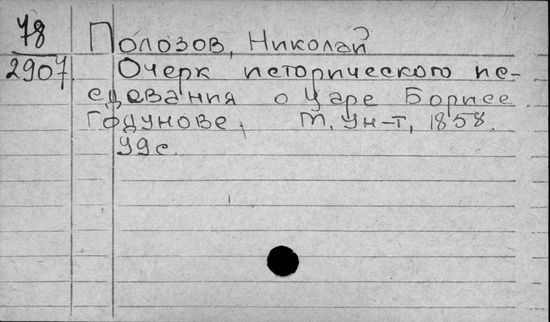 78
2907
Полозов, Николай
Очерк исторического ис-
едования о царе Борисе
Годунове, М, Ун-т, 1858.
99с.